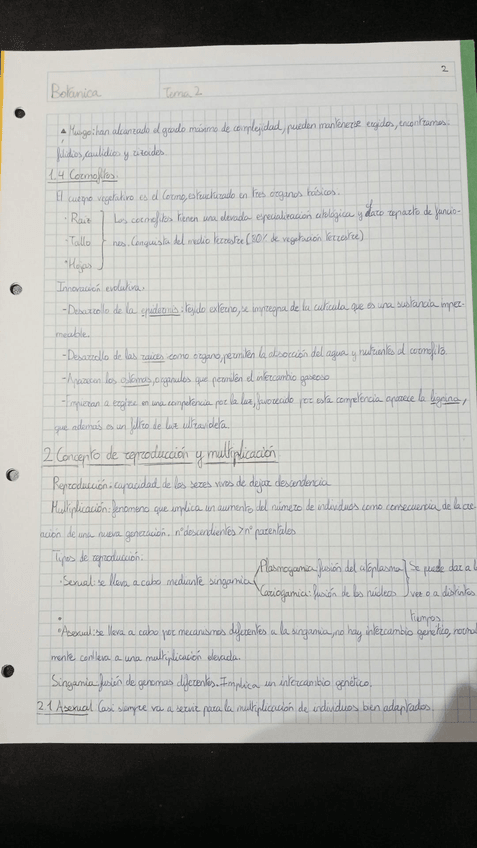 2
Botánica Tema 2
▲ Musgo: han alcanzado el grado máximo de complejidad, pueden mantenerse erguidos, encontramos:
filidios, caulidios y rizoides.
1.4 Cormofitos:
El cuerpo vegetativo es el Cormo, estructurado en tres órganos básicos.
· Raíz
· Tallo
· Hojas
Los cormofitos tienen una elevada especialización citológica y claro reparto de funcio-
nes. Conquista del medio terrestre (80% de vegetación terrestre)
Innovación evolutiva:
-Desarrollo de la epidermis: tejido externo, se impregna de la cutícula que es una sustancia imper-
meable.
-Desarrollo de las raíces como órgano, permiten la absorción del agua y nutrientes al cormofito.
-Aparecen los estomas, orgánulos que permiten el intercambio gaseoso
-Empiezan a erguirse en una competencia por la luz, favorecido por esta competencia aparece la lignina,
que además es un filtro de luz ultravioleta.
2. Concepto de reproducción y multiplicación
Reproducción: capacidad de los seres vivos de dejar descendencia
Multiplicación: fenómeno que implica un aumento del número de individuos como consecuencia de la cre-
ación de una nueva generación. nº descendientes > nº parentales
Tipos de reproducción:
· Sexual: se lleva a cabo mediante singamia
Plasmogamia: fusión del citoplasma
Cariogamia: fusión de los núcleos
Se puede dar a l
vez o a distintos
tiempos
· Asexual: se lleva a cabo por mecanismos diferentes a la singamia, no hay intercambio genético, normal
mente conlleva a una multiplicación elevada.
Singamia: fusión de genomas diferentes. Implica un intercambio genético.
2.1 Asexual Casi siempre va a servir para la multiplicación de individuos bien adaptados.